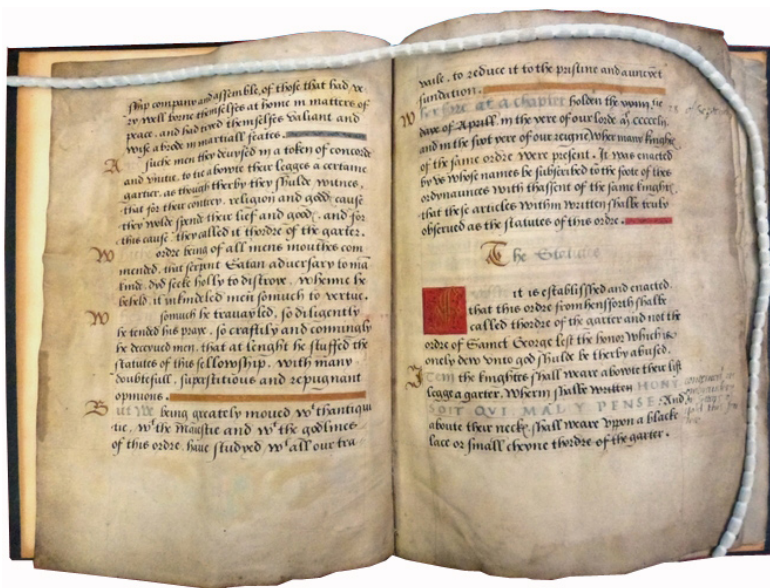 ship company and assemble, of those that had ve
ry well borne themselfes at home in matters of
peace, and had tryed themselfes valiant and
wyse abrode in martiall feates.
A suche men they devysed in a token of concorde
and vnitie, to tie abowte their legges a certaine
garter, as though therby they shulde witnes,
that for their contrey, religion and goddes cause
they wolde spend their lief and goodes, and for
this cause, they called it thordre of the garter.
W ordre being of all mens mouthes com
mended, that serpent Satan adversary to mā
kinde, dyd seeke holly to distroye, whenne he
beheld, it inkindeled men somuch to vertue.
W somuch he travayled, so diligently
he tended his praye, so craftily and conningly
he deceyued men, that at lenght he stuffed the
statutes of this fellowship, with many
doubtefull, superstitious and repugnant
opinions.
But We being greately moved wt thantiqui
tie, wt the Maiestie and wt the godlines
of this ordre, have studyed wt all our tra
vaile, to reduce it to the pristine and auncyēt
fundation.
Wherfore at a chapter holden the
daye of Aprill, in the yere of our lorde
and in the yere of our reigne, wher many knights
of the same ordre were present. It was enacted
by vs whose names be subscribed to the foote of thes
ordynaunces with thassent of the same knightes,
that these articles within written shalbe truly
observed as the statutes of this ordre.
The Statutes
it is establisshed and enacted,
that this ordre from hensforth shalbe
called thordre of the garter and not the
ordre of Sainct George lest the honor which is
onely dew vnto god shulde be therby abused.
Item the knightes shall weare abowte their left
legge a garter, wherin shalbe written HONY
SOIT QVI MAL Y PENSE. And
aboute their necke, shall weare vpon a blacke
lace or small cheyne thordre of the garter.